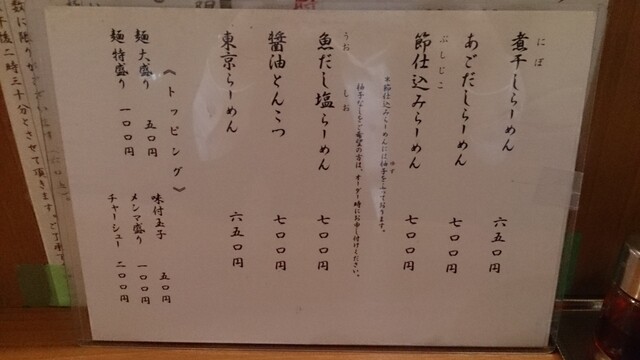 煮干しらーめん 六五〇円
にぼ
あごだしらーめん 七〇〇円
節仕込みらーめん 七〇〇円
ぶしじこ
※節仕込みらーめんには柚子を入っております。
ゆず
柚子なしをご希望の方は、オーダー時にお申し付けください。
魚だし塩らーめん 七〇〇円
うお しお
醤油とんこつ 七〇〇円
東京らーめん 六五〇円
《トッピング》
麺大盛り 五〇円
麺特盛り 一〇〇円
味付玉子 五〇円
メンマ盛り 一〇〇円
チャーシュー 二〇〇円
数に限りがございます
午後二時三十分とさせて頂きます。ご了承